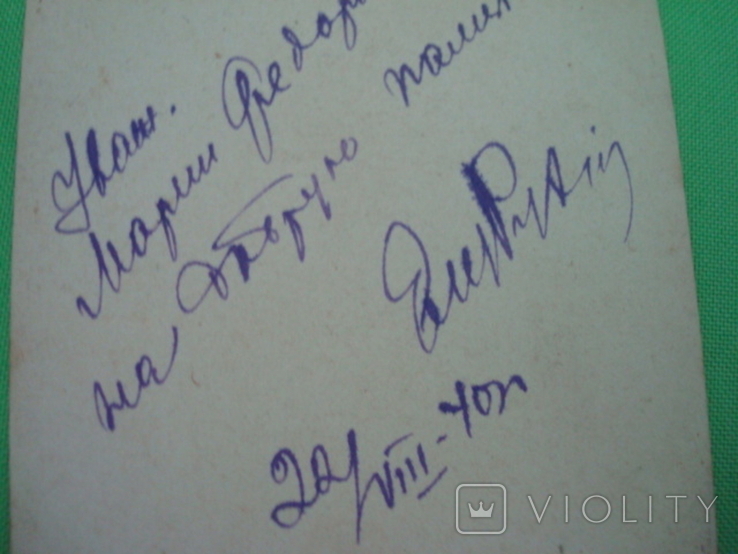 Уваж.
Марии Федор
на добрую памят
22/VIII-70г
VIOLITY